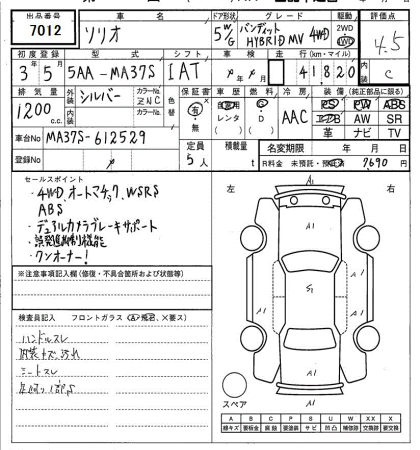 出品番号 車名 ドア形状 グレード 駆動 評価点
7012 ソリオ 5 W/G バンディット HYBRID MV 4WD 2WD 4WD 4.5
初度登録 型式 シフト 車検 走行(km・マイル) 内装
3年5月 5AA-MA37S IAT 年 月 41820 C
排気量 外装 シルバー カラーNo. ZNC 色替 保証書 車歴 燃料 冷房 装備(純正部品に限る)
1200 c.c. 内装 カラーNo. 有・無 自家用 レンタ G・D AAC PS PW ABS
エアB AW SR
革 ナビ TV
車台No MA37S-612529 定員 積載量 名変期限 年 月 日
登録No 5人 t R料金 未預託・預託済 7690円
セールスポイント
・4WD、オートマチック、WSRS
ABS
・デュアルカメラブレーキサポート
・誤発進抑制機能
・ワンオーナー!
※注意事項記入欄(修復・不具合箇所および状態等)
検査員記入 フロントガラス(A・飛石、×要ス)
ハンドルスレ
内装キズ、汚れ
シートスレ
左 右
A1
A1
A1
S1
A1
A1
A1
A1
スペア
A B C P S U W X XX
線キズ 要板金 腐蝕 要塗装 サビ 凹凸 補修跡 要交換 交換跡